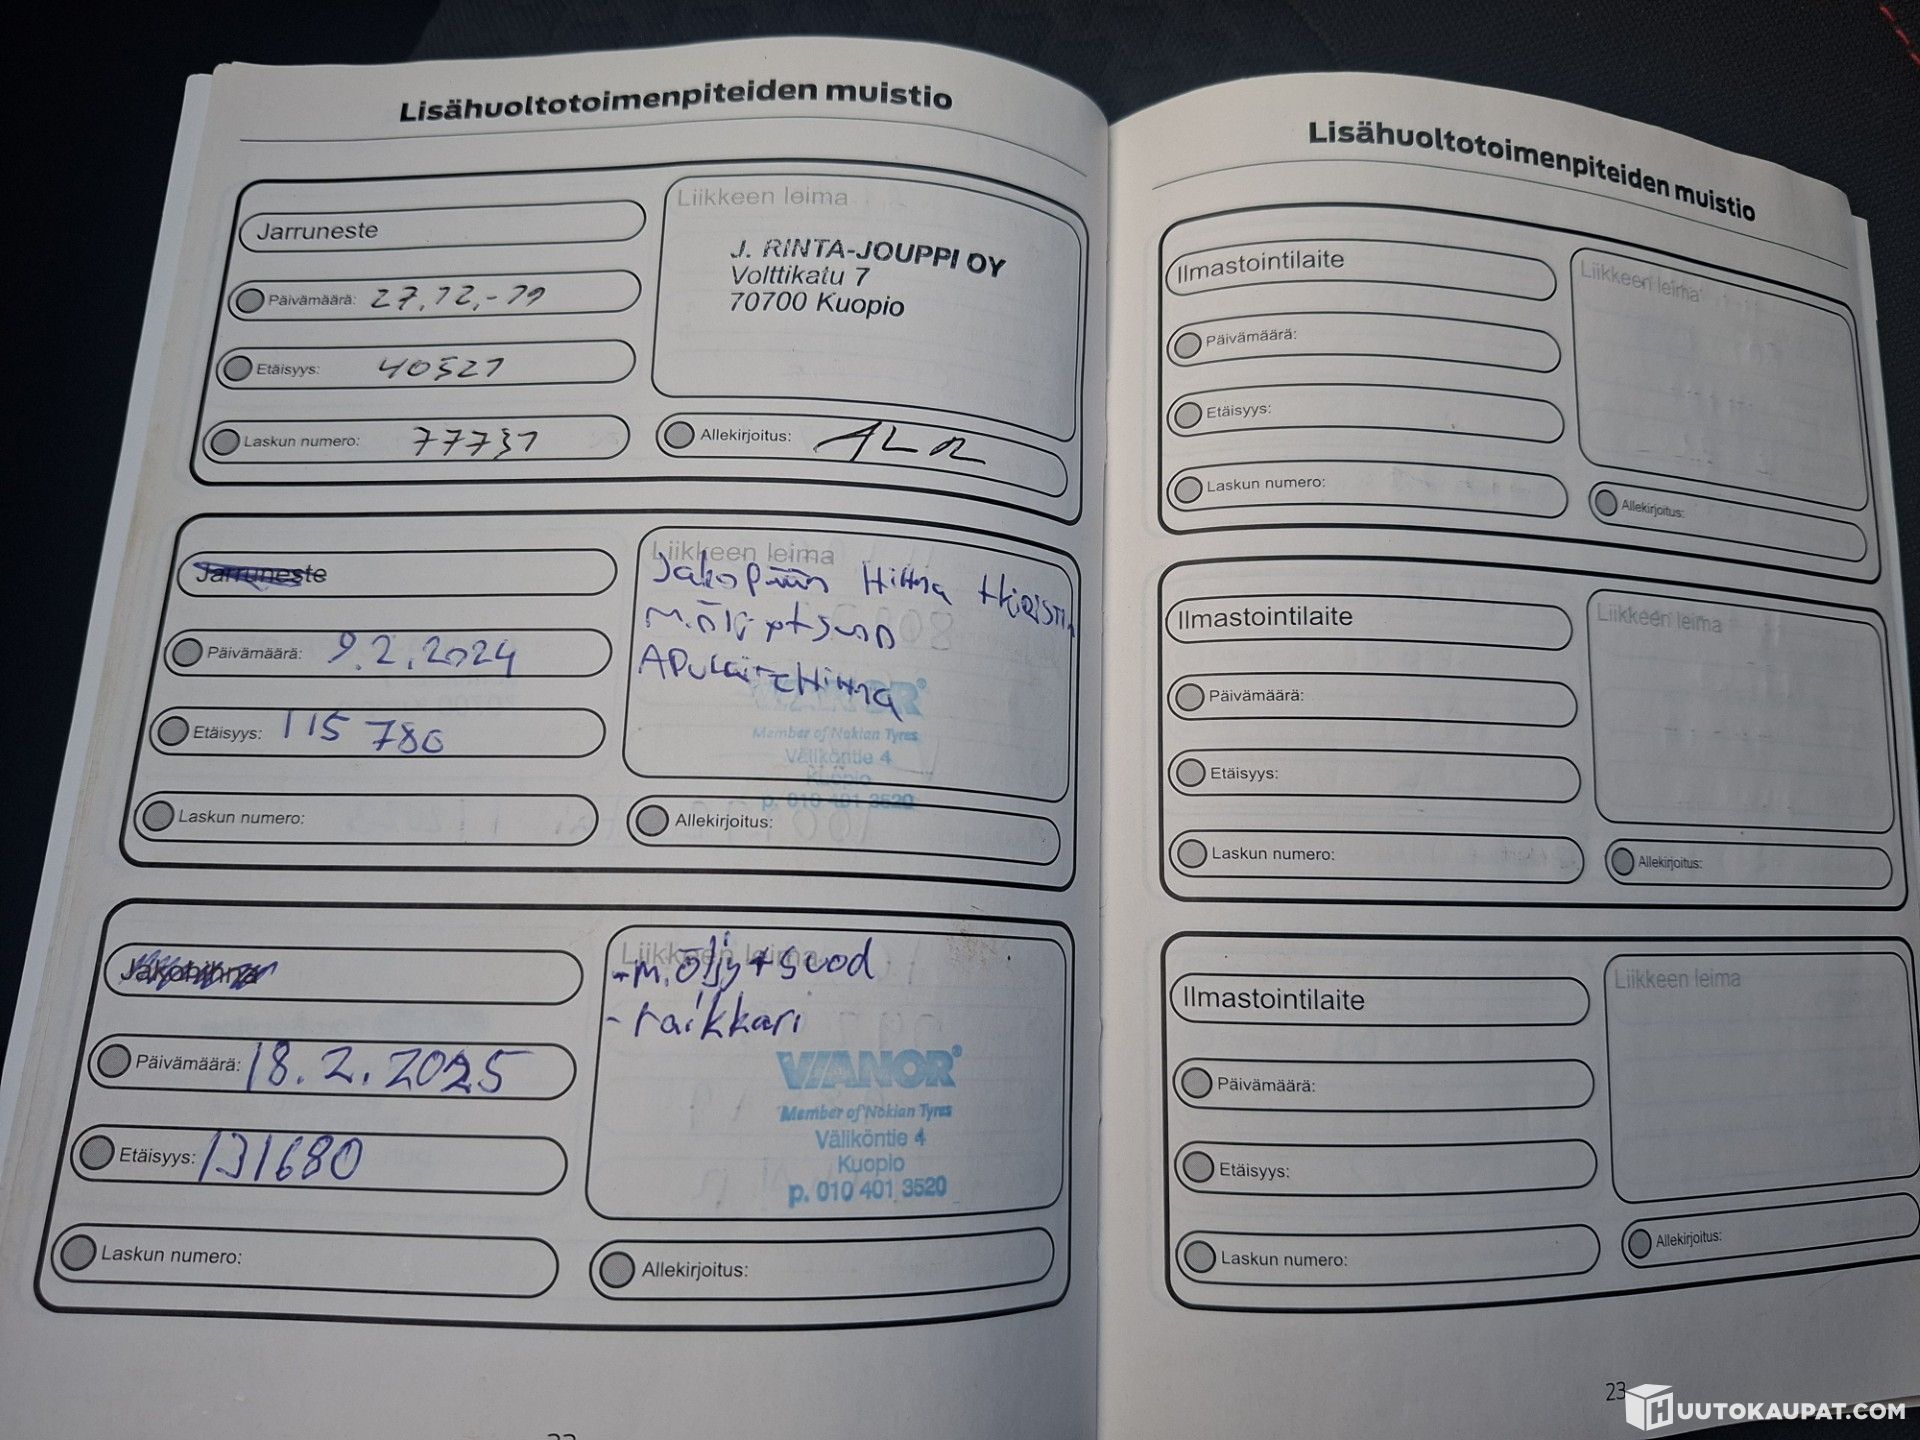 Lisähuoltotoimenpiteiden muistio
Jarruneste
Päivämäärä: 27.12.-19
Etäisyys: 40521
Laskun numero: 77731
Liikkeen leima
J. RINTA-JOUPPI OY
Volttikatu 7
70700 Kuopio
Allekirjoitus:
Jarruneste
Päivämäärä: 9.2.2024
Etäisyys: 115 780
Laskun numero:
Liikkeen leima
Jakopään Hihna
VIANOR
Member of Nokian Tyres
Väliköntie 4
Kuopio
p. 010 401 3520
Allekirjoitus:
Jakohihna
Päivämäärä: 18.2.2025
Etäisyys: 131680
Laskun numero:
Liikkeen leima
-m.öljy+suod
- raikkari
VIANOR
Member of Nokian Tyres
Väliköntie 4
Kuopio
p. 010 401 3520
Allekirjoitus:
Lisähuoltotoimenpiteiden muistio
Ilmastointilaite
Päivämäärä:
Etäisyys:
Laskun numero:
Liikkeen leima
Allekirjoitus:
Ilmastointilaite
Päivämäärä:
Etäisyys:
Laskun numero:
Liikkeen leima
Allekirjoitus:
Ilmastointilaite
Päivämäärä:
Etäisyys:
Laskun numero:
Liikkeen leima
Allekirjoitus:
23
HUUTOKAUPAT.COM